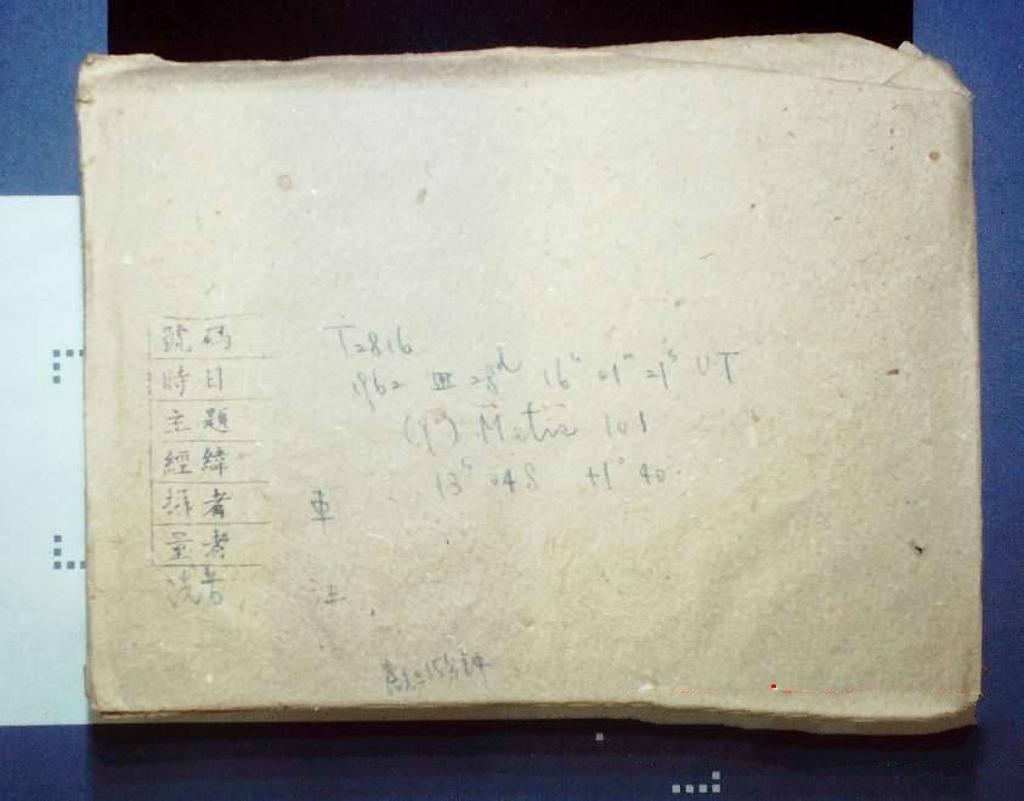 號碼 T2816
時日 1962 III 28d 16h 01m 21s UT
主題 (9) Metis 101
經緯 13h 04.8 +1° 40'
攝者 車
量者
洗者 汪
露光 15分钟